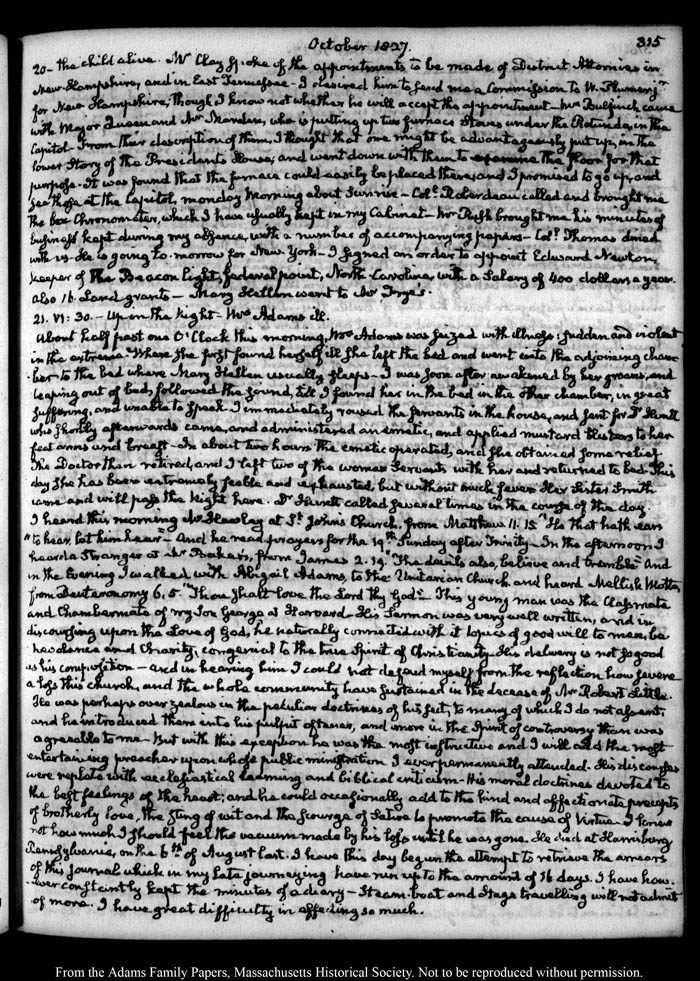 October 1827.
315
20 - the child alive. Mr Clay of one of the appointments to be made of District Attornies in
New-Hampshire, and in East Tennessee - I desired him to send me a Commission to W. Plumer jr
for New Hampshire, though I know not whether he will accept the appointment - Mr Bulfinch came
with Major and Mr, who is putting up two furnace Stoves under the Rotunda, in the
Capitol. From their description of them, I thought that one might be advantageously put up, in the
lower Story of the Presidents House, and went down with them to examine the floor for that
purpose. It was found that the furnace could easily be placed there, and I promised to go up, and
see those at the Capitol, monday Morning about Sunrise - Coll. Roberdeau called and brought me
the box Chronometer, which I have usually kept in my Cabinet - Mr Rush brought me his minutes of
business kept during my absence, with a number of accompanying papers - Coll. Thomas dined
with us. He is going to-morrow for New York - I signed an order to appoint Edward Newton,
Keeper of the Beacon light, federal point, North-Carolina, with a Salary of 400 dollars a year.
Also 16. Land grants - Mary Hellen went to Mr Frye's.
21. VI: 30. - Up in the Night - Mrs Adams ill.
About half past one O'Clock this morning, Mrs Adams was seized with illness: sudden and violent
in the extreme. Where she first found herself ill she left the bed and went into the adjoining cham
-ber to the bed where Mary Hellen usually sleeps - I was soon after awakened by her groans, and
leaping out of bed, followed the sound, till I found her in the bed in the other chamber, in great
suffering, and unable to speak. I immediately roused the servants in the house, and sent for Dr Huntt
who shortly afterwards came, and administered an emetic, and applied mustard blisters to her
feet arms and breast - In about two hours the emetic operated, and she obtained some relief.
The Doctor then retired, and I left two of the women Servants with her and returned to bed. This
day she has been extremely feeble and exhausted, but without much fever. Her Sister Smith
came and will pass the Night here. Dr Huntt called several times in the course of the day.
I heard this morning Mr Hawley at St. John's Church, from Matthew 11. 15. "He that hath ears
"to hear, let him hear" - And he read prayers for the 19th Sunday after Trinity - In the afternoon I
heard a Stranger at Mr Baker's, from James 2. 19. "The devils also, believe and tremble" And
in the Evening I walked with Abigail Adams, to the Unitarian Church and heard Mellish Motte,
from Deuteronomy 6. 5. "Thou shalt love the Lord thy God" - This young man was the Classmate
and Chambermate of my Son George at Harvard - His Sermon was very well written, and in
discoursing upon the Love of God, he naturally connected with it topics of good will to men, be
nevolence and Charity, congenial to the true Spirit of Christianity. His delivery is not so good
as his composition - and in hearing him I could not defend myself from the reflection how severe
a loss this church, and the whole community have sustained in the decease of Mr Robert Little.
He was perhaps over zealous in the peculiar doctrines of his sect, to many of which I do not assent,
and he introduced them into his pulpit oftener, and more in the Spirit of controversy than was
agreeable to me - But with this exception he was the most instructive and I will add the most
entertaining preacher upon whose public ministration I ever permanently attended. His discourses
were replete with ecclesiastical learning and biblical criticism - His moral doctrines devoted to
the best feelings of the heart; and he could occasionally add to the kind and affectionate precepts
of brotherly love, the sting of wit and the scourge of Satire to promote the cause of Virtue - I knew
not how much I should feel the vacuum made by his loss until he was gone. He died at Harrisburg
Pennsylvania, on the 6th of August last. I have this day begun the attempt to retrieve the arrears
of this Journal which in my late journeying have run up to the amount of 76 days. I have how-
-ever constantly kept the minutes of a diary - Steam-boat and Stage travelling will not admit
of more. I have great difficulty in effecting so much.
From the Adams Family Papers, Massachusetts Historical Society. Not to be reproduced without permission.